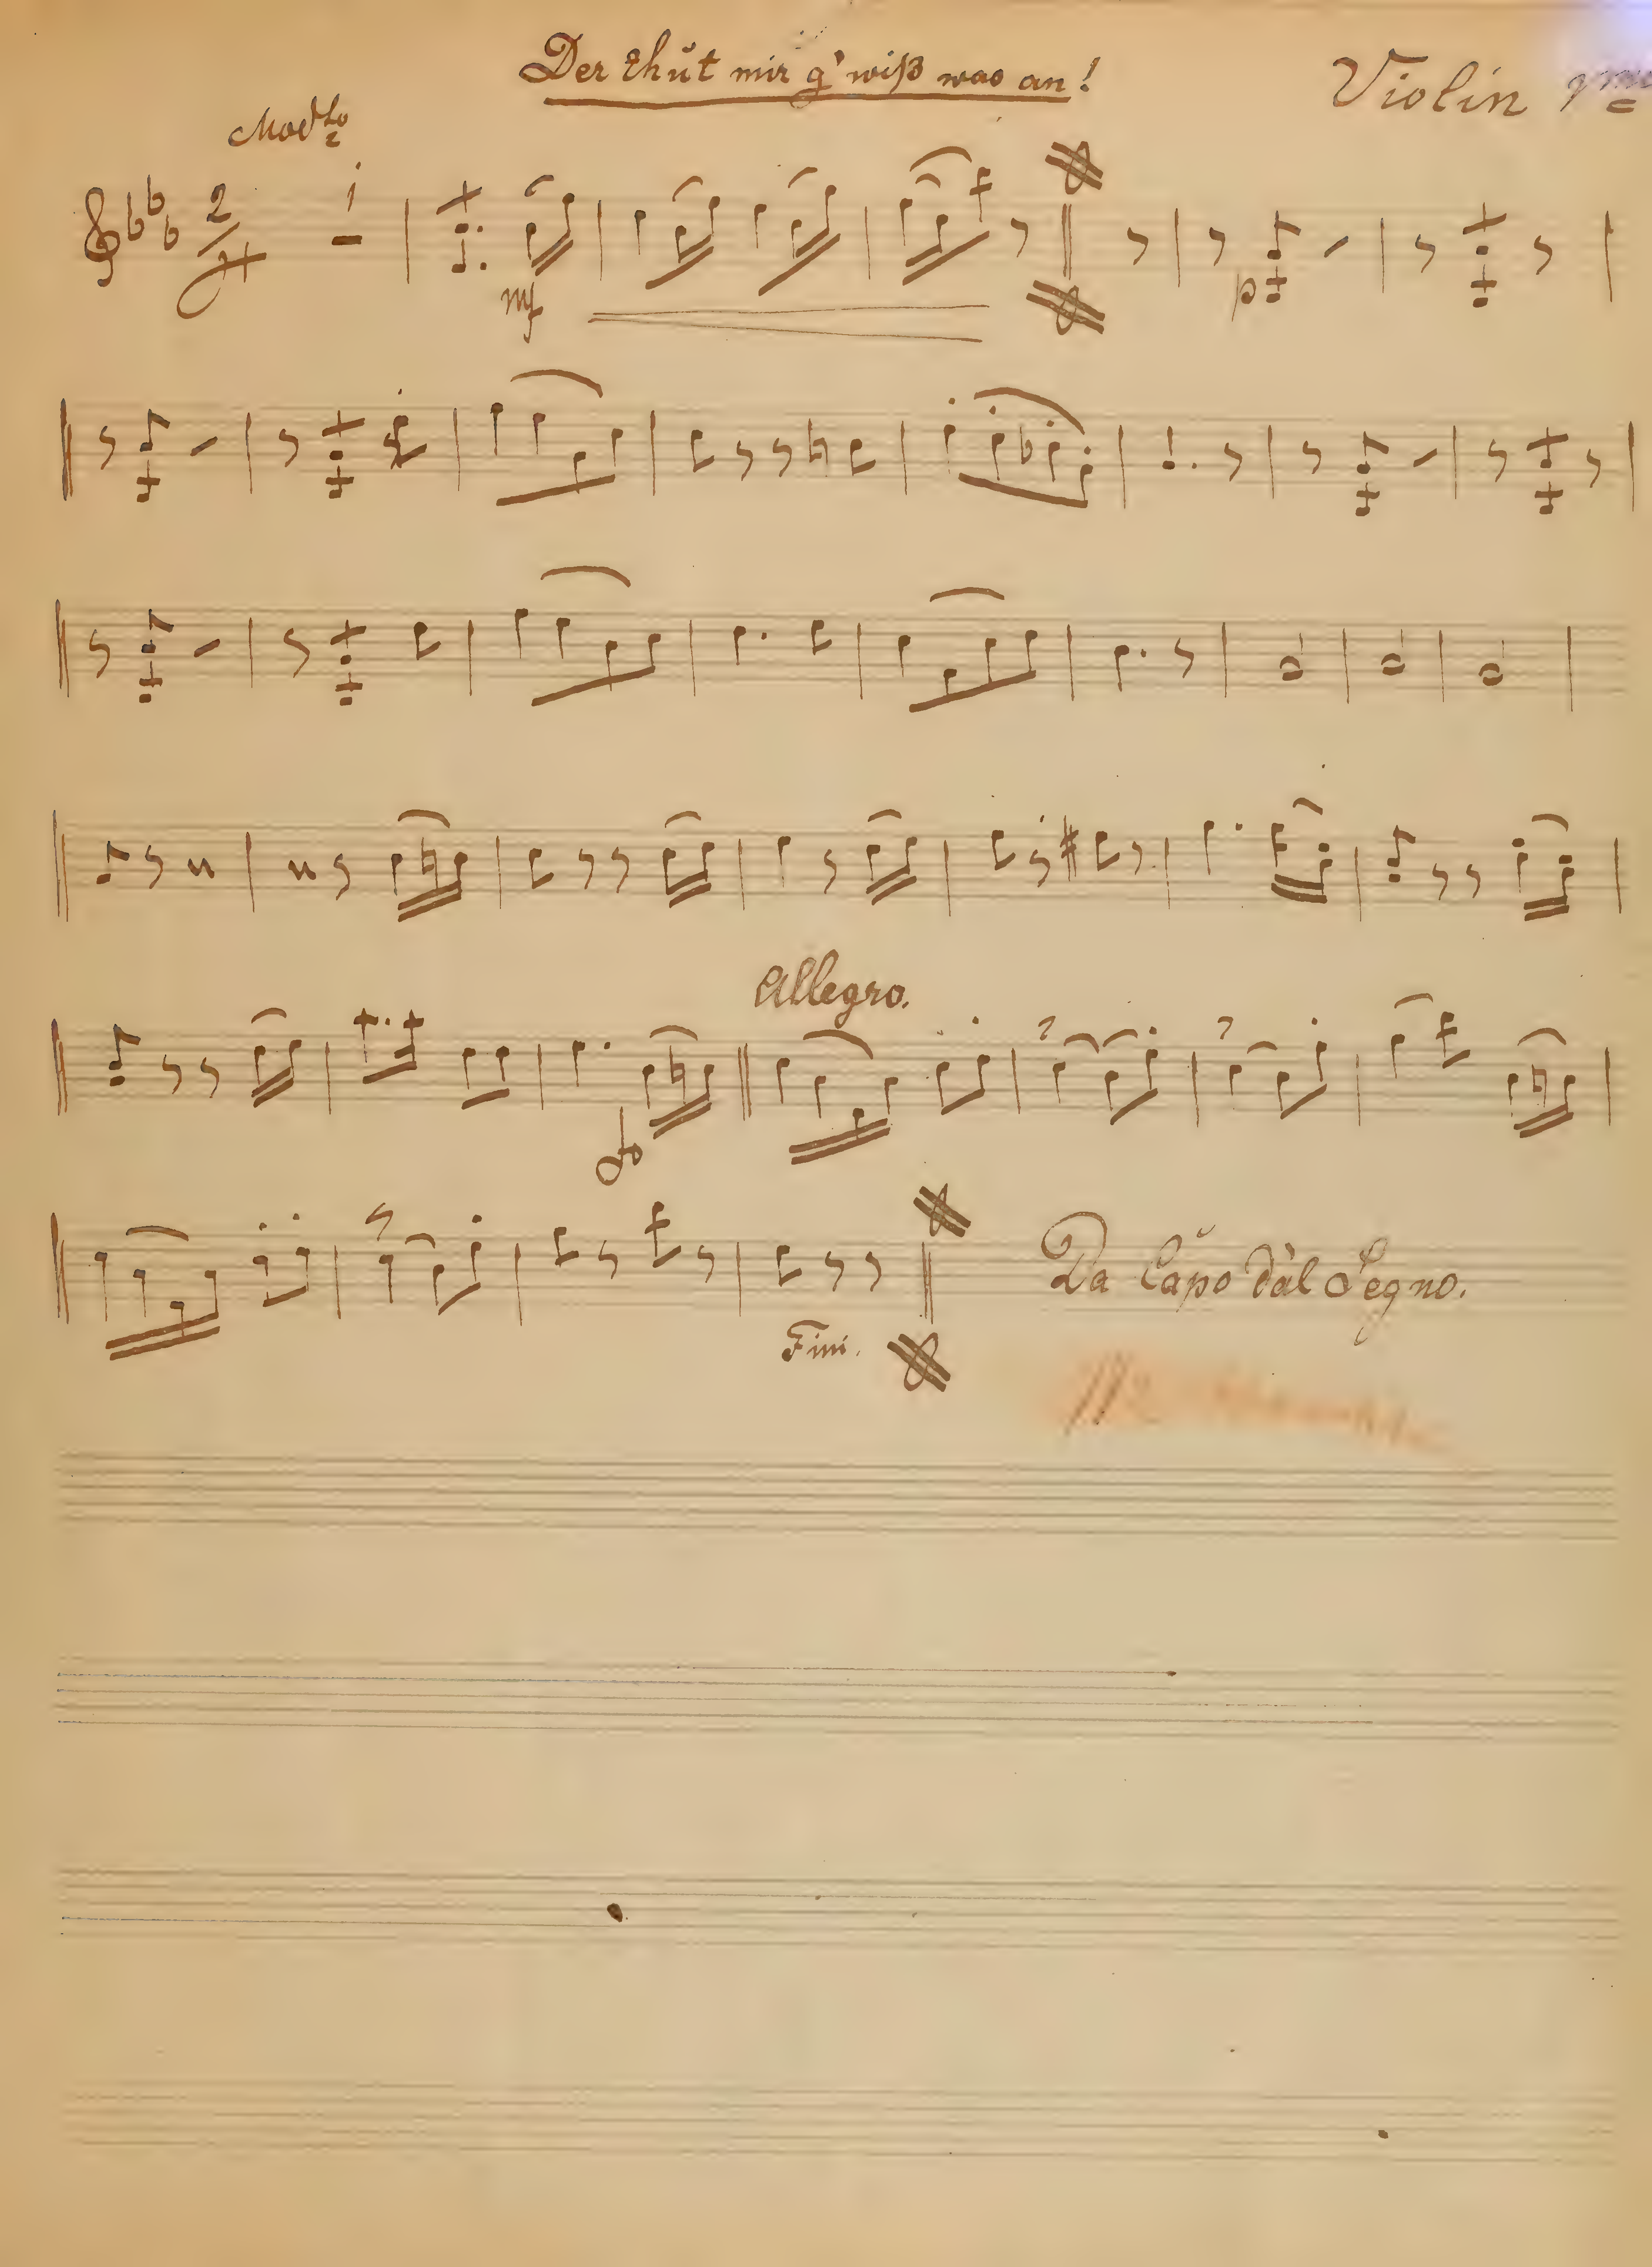 Der thŭt mir g'wiß was an!
Violin 1mo
Modto
2/4
1
mf
p
Allegro.
Da Capo dal Segno.
Fini.